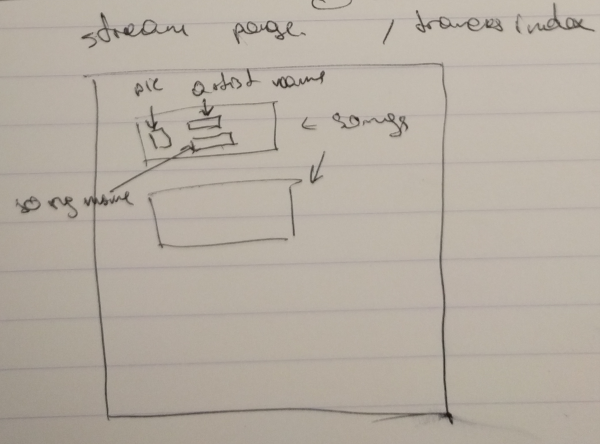 stream page. / tracks index
pic artist name
< songs
song name